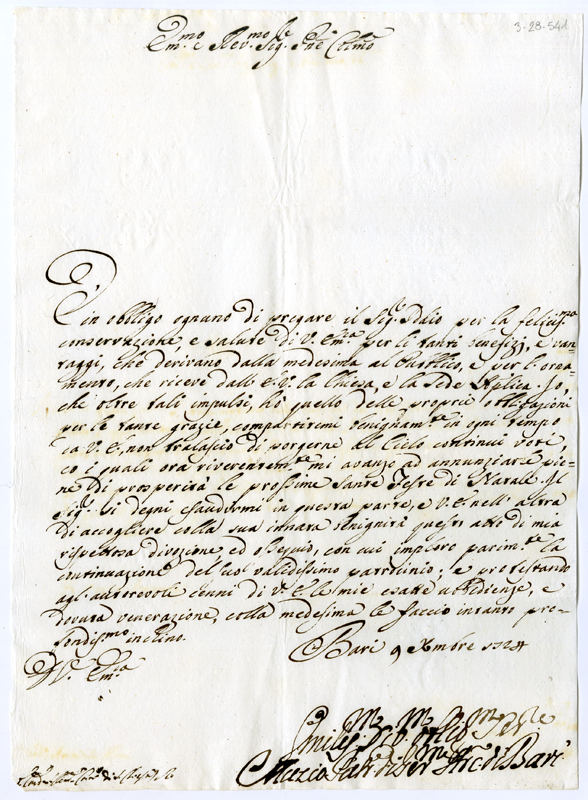 3-28-541
Em.mo e Rev.mo Sig.re Pne Colmo
È in obbligo ognuno di pregare il Sig.r Iddio per la feliciss.ma
conservazione, e salute di V. Em.za per li tanti benefizj, e van-
taggi, che derivano dalla medesima al Pubblico, e per l'orna-
mento, che riceve dall'E. V. la Chiesa, e la Sede Aplica. Io,
che oltre tali impulsi, hò quello delle proprie obbligazioni
per le tante grazie, compartitemi benignam.te in ogni tempo
da V. E., non tralascio di porgerne al Cielo continui voti
co i quali ora riverentem.te mi avanzo ad annunziarle pie-
ne di prosperità le prossime sante Feste di Natale. Il
Sig.r si degni esaudermi in questa parte, e V. E. nell'altra
di accogliere colla sua innata benignità quest'atto di mia
rispettosa divozione, ed ossequio, con cui imploro parim.te la
continuazione del suo validissimo patrocinio; e protestando
agl'autorevoli cenni di V. E. le mie esatte ubbidienze, e
dovuta venerazione, colla medesima le faccio intanto pro-
fondis.mo inchino.
Bari 9 Xmbre 1724
D V. Em.za
Muzio Arc. di Bari